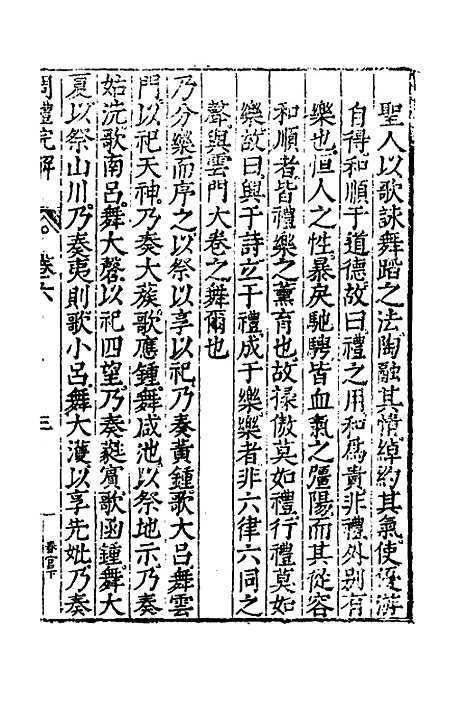 聖人以歌詠舞蹈之法陶融其情綽約其氣使優游
自得和順于道德故曰禮之用和爲貴非禮外别有
樂也但人之性暴戾馳騁皆血氣之彊陽而其從容
和順者皆禮樂之薰育也故祿傲莫如禮行禮莫如
樂故曰興于詩立于禮成于樂樂者非六律六同之
聲與雲門大卷之舞爾也
乃分樂而序之以祭以享以祀乃奏黃鍾歌大呂舞雲
門以祀天神乃奏大蔟歌應鍾舞咸池以祭地示乃奏
姑洗歌南呂舞大磬以祀四望乃奏蕤賓歌函鍾舞大
夏以祭山川乃奏夷則歌小呂舞大濩以享先妣乃奏
周禮完解 卷六 三 春官下